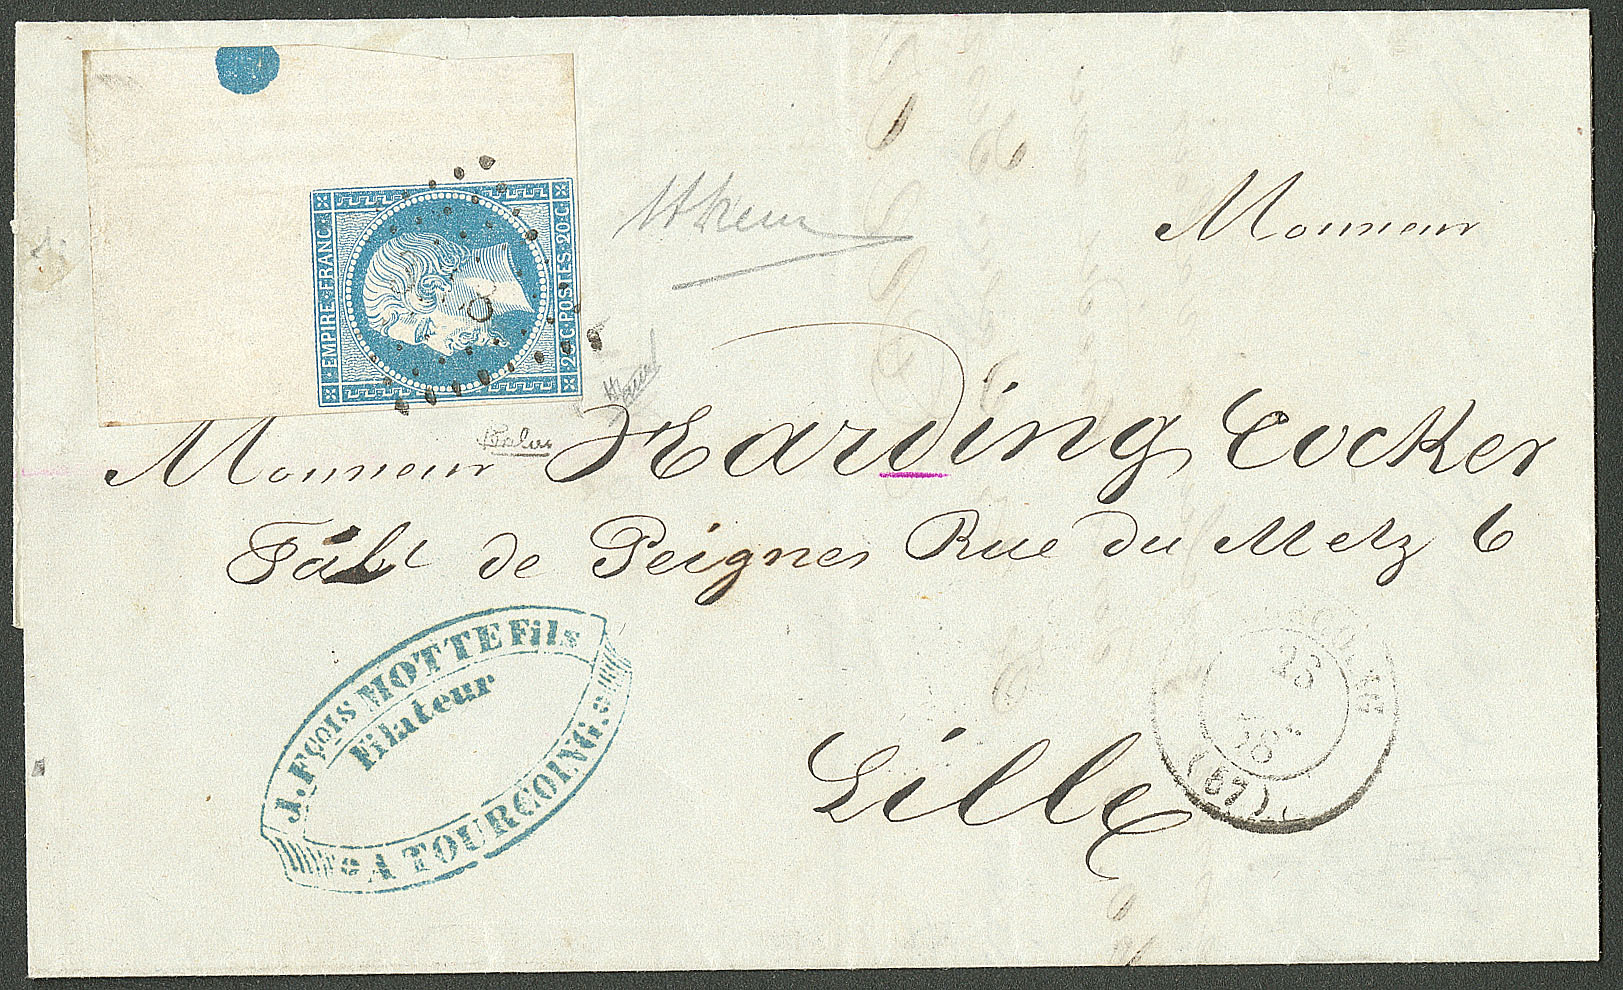 EMPIRE·FRANC·
20·C·POSTES·20·C·
Monsieur
Monsieur Harding Cocker
Fabt de Peignes Rue du Metz 6
Lille
J. Fçois MOTTE Fils
Filateur
A TOURCOING.
(57)